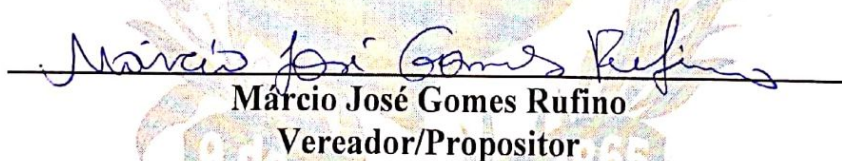 Márcio José Gomes Rufino
Márcio José Gomes Rufino
Vereador/Propositor